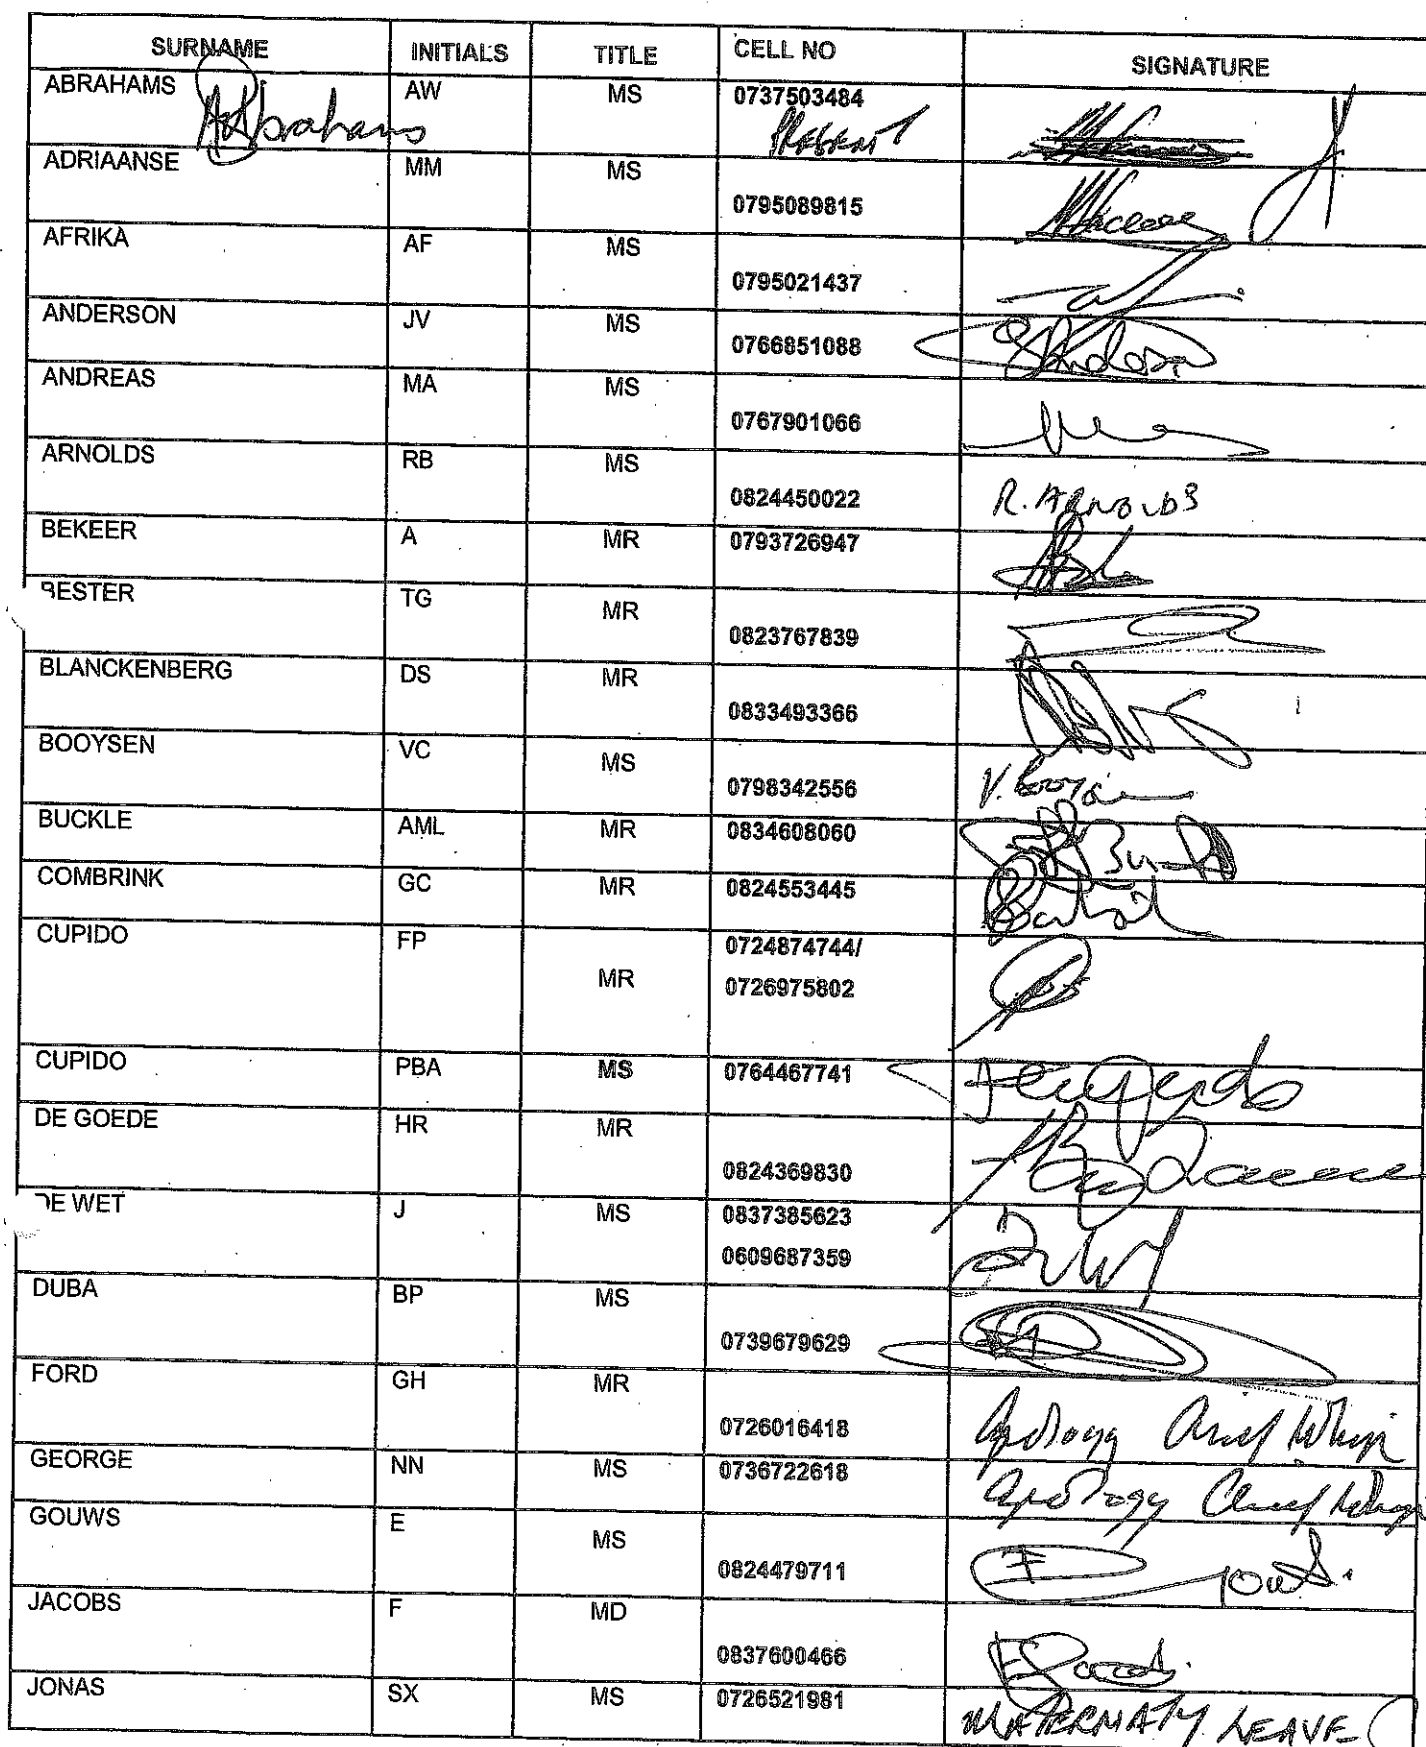 SURNAME INITIALS TITLE CELL NO SIGNATURE
ABRAHAMS AW MS 0737503484
AAbrahams PRESENT
ADRIAANSE MM MS
0795089815
AFRIKA AF MS
0795021437
ANDERSON JV MS
0766851088
ANDREAS MA MS
0767901066
ARNOLDS RB MS
0824450022 R. ARNOLDS
BEKEER A MR 0793726947
BESTER TG MR
0823767839
BLANCKENBERG DS MR
0833493366
BOOYSEN VC MS
0798342556 V. Booysen
BUCKLE AML MR 0834608060
COMBRINK GC MR 0824553445
CUPIDO FP 0724874744/
MR 0726975802
CUPIDO PBA MS 0764467741
DE GOEDE HR MR
0824369830
DE WET J MS 0837385623
0609687359
DUBA BP MS
0739679629
FORD GH MR
0726016418 Apology Chief Whip
GEORGE NN MS 0736722618 Apology Chief Whip
GOUWS E MS
0824479711
JACOBS F MD
0837600466
JONAS SX MS 0726521981
MATERNATY LEAVE